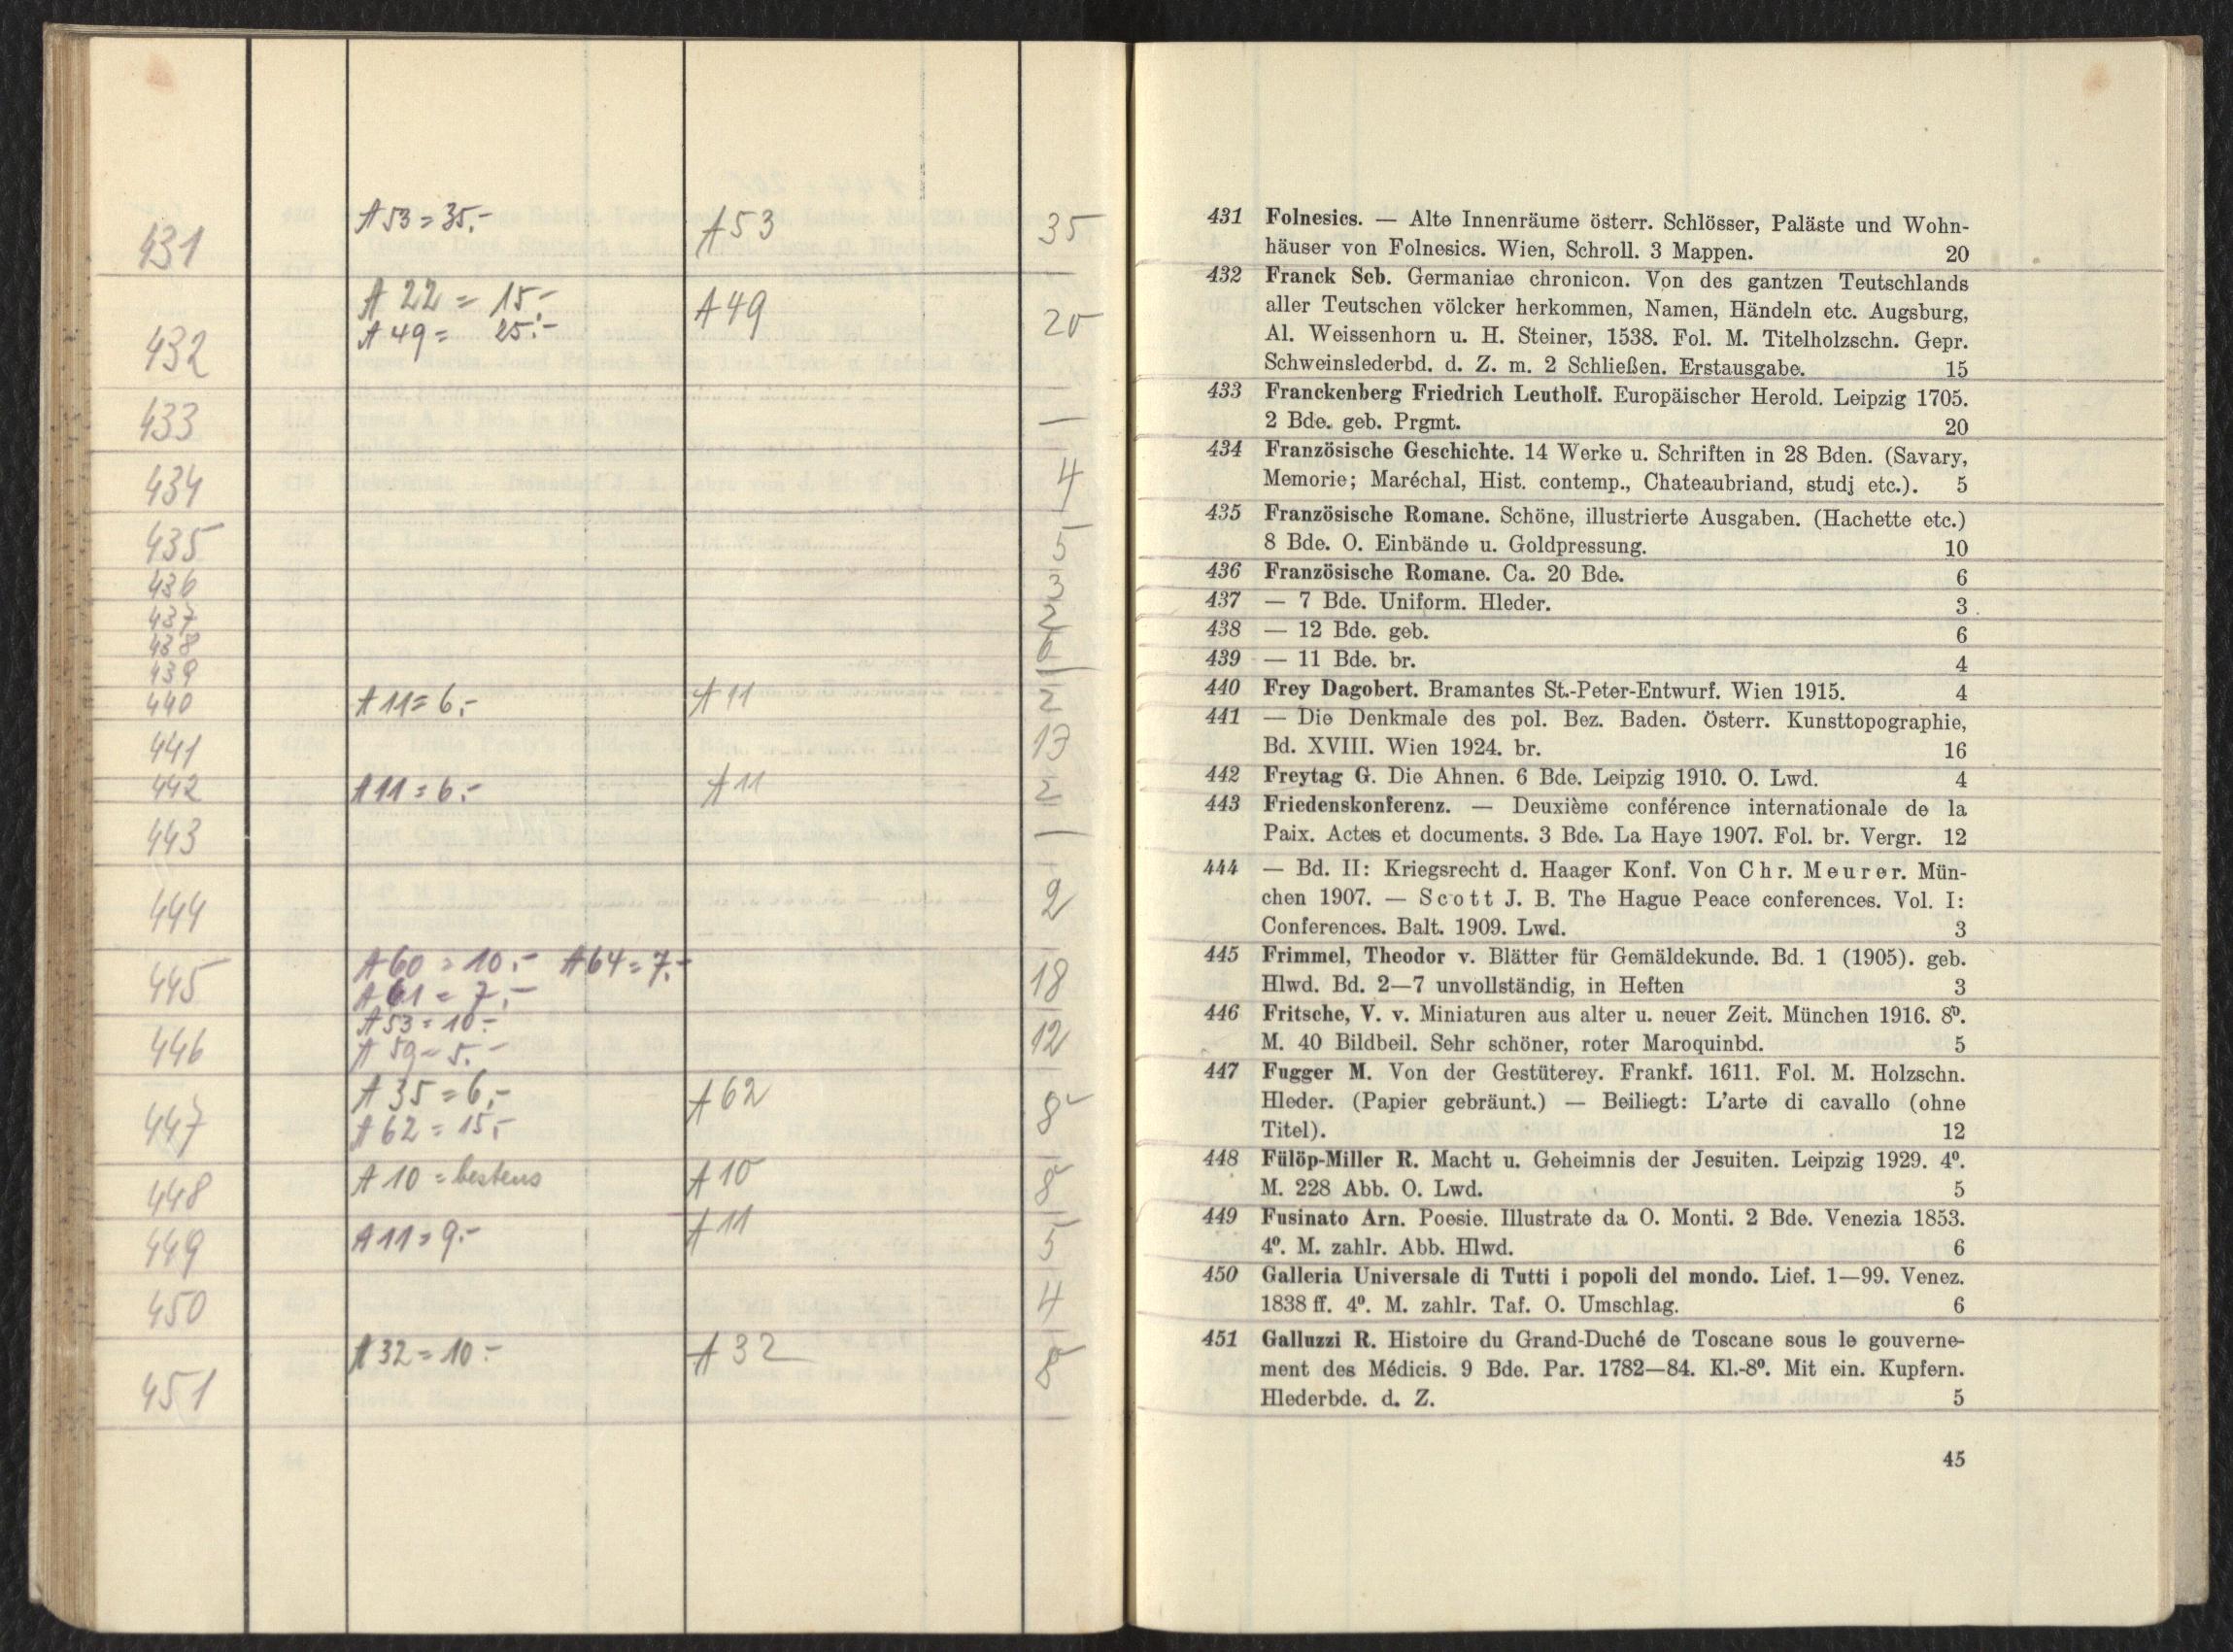 431 A 53 = 35.- A 53 35
A 22 = 15.- A 49
432 A 49 = 25.- 20
433 —
434 4
435 5
436 3
437 2
438 6
439 —
440 A 11 = 6.- A 11 2
441 13
442 A 11 = 6.- A 11 2
443 —
444 2
A 60 = 10.- A 64 = 7.-
445 A 61 = 7.- 18
A 53 = 10.-
446 A 59 = 5.- 12
A 35 = 6.- A 62
447 A 62 = 15.- 8
448 A 10 = bestens A 10 8
449 A 11 = 9.- A 11 5
450 4
451 A 32 = 10.- A 32 8
431 Folnesics. — Alte Innenräume österr. Schlösser, Paläste und Wohn-
häuser von Folnesics. Wien, Schroll. 3 Mappen. 20
432 Franck Seb. Germaniae chronicon. Von des gantzen Teutschlands
aller Teutschen völcker herkommen, Namen, Händeln etc. Augsburg,
Al. Weissenhorn u. H. Steiner, 1538. Fol. M. Titelholzschn. Gepr.
Schweinslederbd. d. Z. m. 2 Schließen. Erstausgabe. 15
433 Franckenberg Friedrich Leutholf. Europäischer Herold. Leipzig 1705.
2 Bde. geb. Prgmt. 20
434 Französische Geschichte. 14 Werke u. Schriften in 28 Bden. (Savary,
Memorie; Maréchal, Hist. contemp., Chateaubriand, studj etc.). 5
435 Französische Romane. Schöne, illustrierte Ausgaben. (Hachette etc.)
8 Bde. O. Einbände u. Goldpressung. 10
436 Französische Romane. Ca. 20 Bde. 6
437 — 7 Bde. Uniform. Hleder. 3
438 — 12 Bde. geb. 6
439 — 11 Bde. br. 4
440 Frey Dagobert. Bramantes St.-Peter-Entwurf. Wien 1915. 4
441 — Die Denkmale des pol. Bez. Baden. Österr. Kunsttopographie,
Bd. XVIII. Wien 1924. br. 16
442 Freytag G. Die Ahnen. 6 Bde. Leipzig 1910. O. Lwd. 4
443 Friedenskonferenz. — Deuxième conférence internationale de la
Paix. Actes et documents. 3 Bde. La Haye 1907. Fol. br. Vergr. 12
444 — Bd. II: Kriegsrecht d. Haager Konf. Von Chr. Meurer. Mün-
chen 1907. — Scott J. B. The Hague Peace conferences. Vol. I:
Conferences. Balt. 1909. Lwd. 3
445 Frimmel, Theodor v. Blätter für Gemäldekunde. Bd. 1 (1905). geb.
Hlwd. Bd. 2—7 unvollständig, in Heften 3
446 Fritsche, V. v. Miniaturen aus alter u. neuer Zeit. München 1916. 8⁰.
M. 40 Bildbeil. Sehr schöner, roter Maroquinbd. 5
447 Fugger M. Von der Gestüterey. Frankf. 1611. Fol. M. Holzschn.
Hleder. (Papier gebräunt.) — Beiliegt: L'arte di cavallo (ohne
Titel). 12
448 Fülöp-Miller R. Macht u. Geheimnis der Jesuiten. Leipzig 1929. 4⁰.
M. 228 Abb. O. Lwd. 5
449 Fusinato Arn. Poesie. Illustrate da O. Monti. 2 Bde. Venezia 1853.
4⁰. M. zahlr. Abb. Hlwd. 6
450 Galleria Universale di Tutti i popoli del mondo. Lief. 1—99. Venez.
1838 ff. 4⁰. M. zahlr. Taf. O. Umschlag. 6
451 Galluzzi R. Histoire du Grand-Duché de Toscane sous le gouverne-
ment des Médicis. 9 Bde. Par. 1782—84. Kl.-8⁰. Mit ein. Kupfern.
Hlederbde. d. Z. 5
45